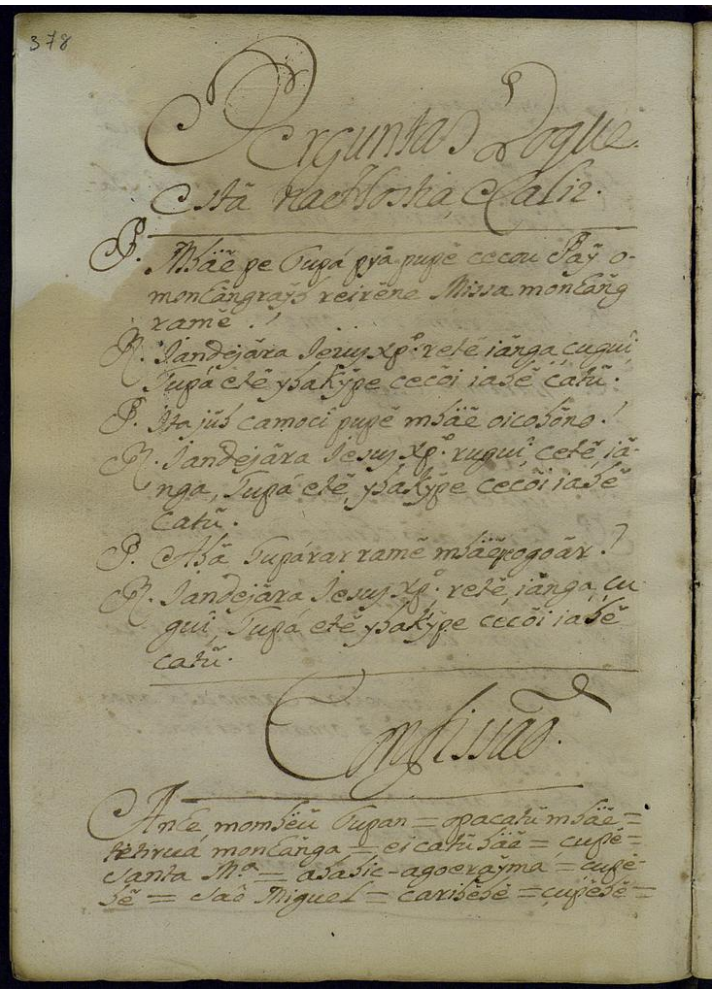 378
Perguntas Doque
está na Hostia, e Caliz.
P. Mbäẽ pe Tupá pyã pupẽ cecou Paỹ o-
moncãngraỹs reirẽne Missa moncãng
ramẽ.!
R. Jandejára Jesuy xp.º retẽ iãnga, cuguî,
Tupá etẽ ybakỹpe cecõi iabẽ catũ.
P. Ita jub camoci pupẽ mbäẽ oicobõno.!
R. Jandejára Jesuy xp.º ruguî, cetẽ, iã-
nga, Tupá etẽ, ybakỹpe cecõi iabẽ
catũ.
P. Abä Tupárar ramẽ mbäẽpogoär?
R. Jandejára Jesuy xp.º retẽ, iãnga, cu
guî, Tupá etẽ ybakỹpe cecõi iabẽ
catũ.
Confissaõ.
Ancẽ, mombëu Tupan = opacatũ mbäẽ =
moncãñga = ei catũ bäẽ = cupẽ =
Santa M.ª = ababic-agoeraỹma = cupẽ-
bẽ = Saõ Miguel = caribẽbẽ = cupẽbẽ =